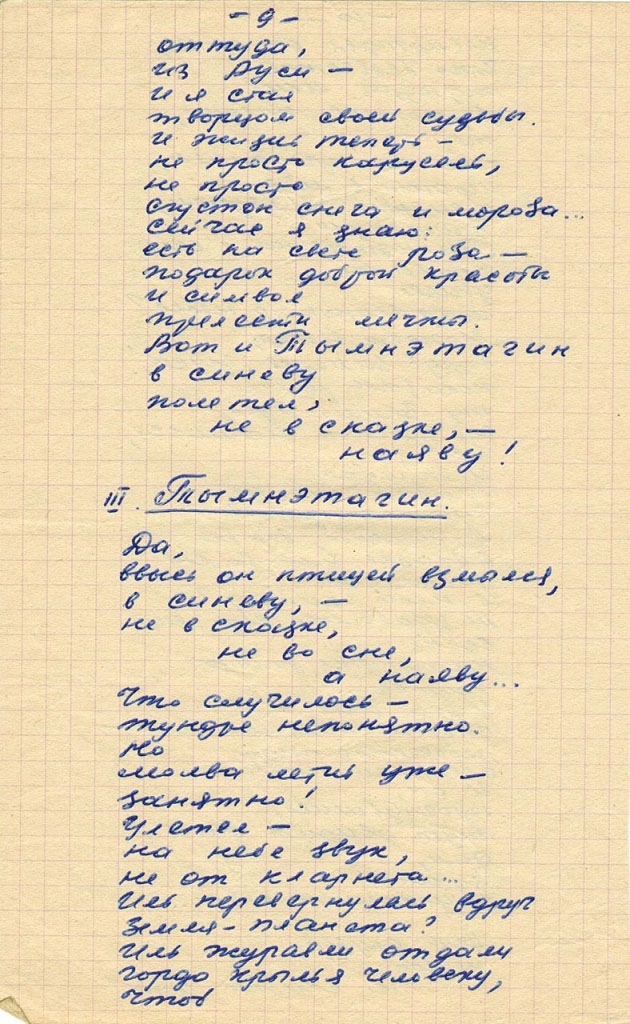 - 9 -
оттуда,
из Руси —
и я стал
творцом своей судьбы.
И жизнь теперь —
не просто карусель,
не просто
сгусток снега и мороза...
Сейчас я знаю:
есть на свете роза —
подарок доброй красоты
и символ
прелести мечты.
Вот и Тымнэтагин
в синеву
полетел,
не в сказке, —
наяву!
III. Тымнэтагин.
Да,
ввысь он птицей взмылся,
в синеву, —
не в сказке,
не во сне,
а наяву...
Что случилось —
тундре непонятно.
Но
молва летит уже —
занятно!
Улетел —
на небе звук,
не от кларнета...
Иль перевернулась вдруг
Земля-планета?
Иль журавли отдали
гордо крылья человеку,
чтоб